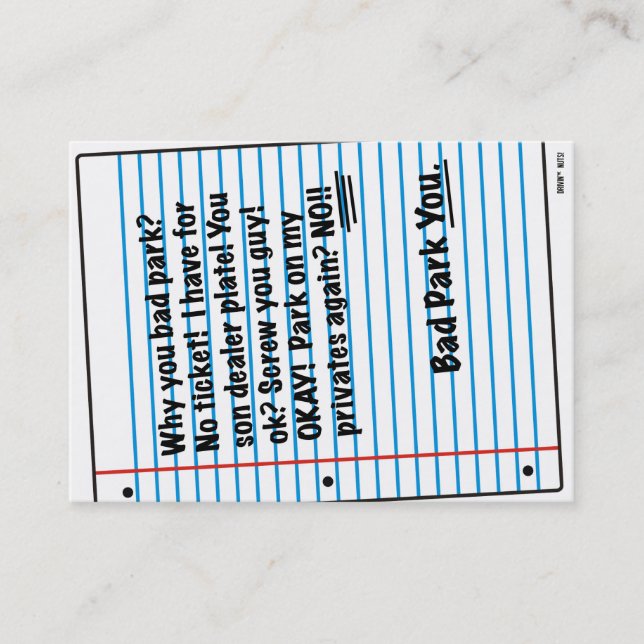 Why you bad park?
No ticket! I have for
son dealer plate! You
ok? Screw you guy!
OKAY! Park on my
privates again? NO!!
Bad Park You.
DRIVIN™ NUTS!